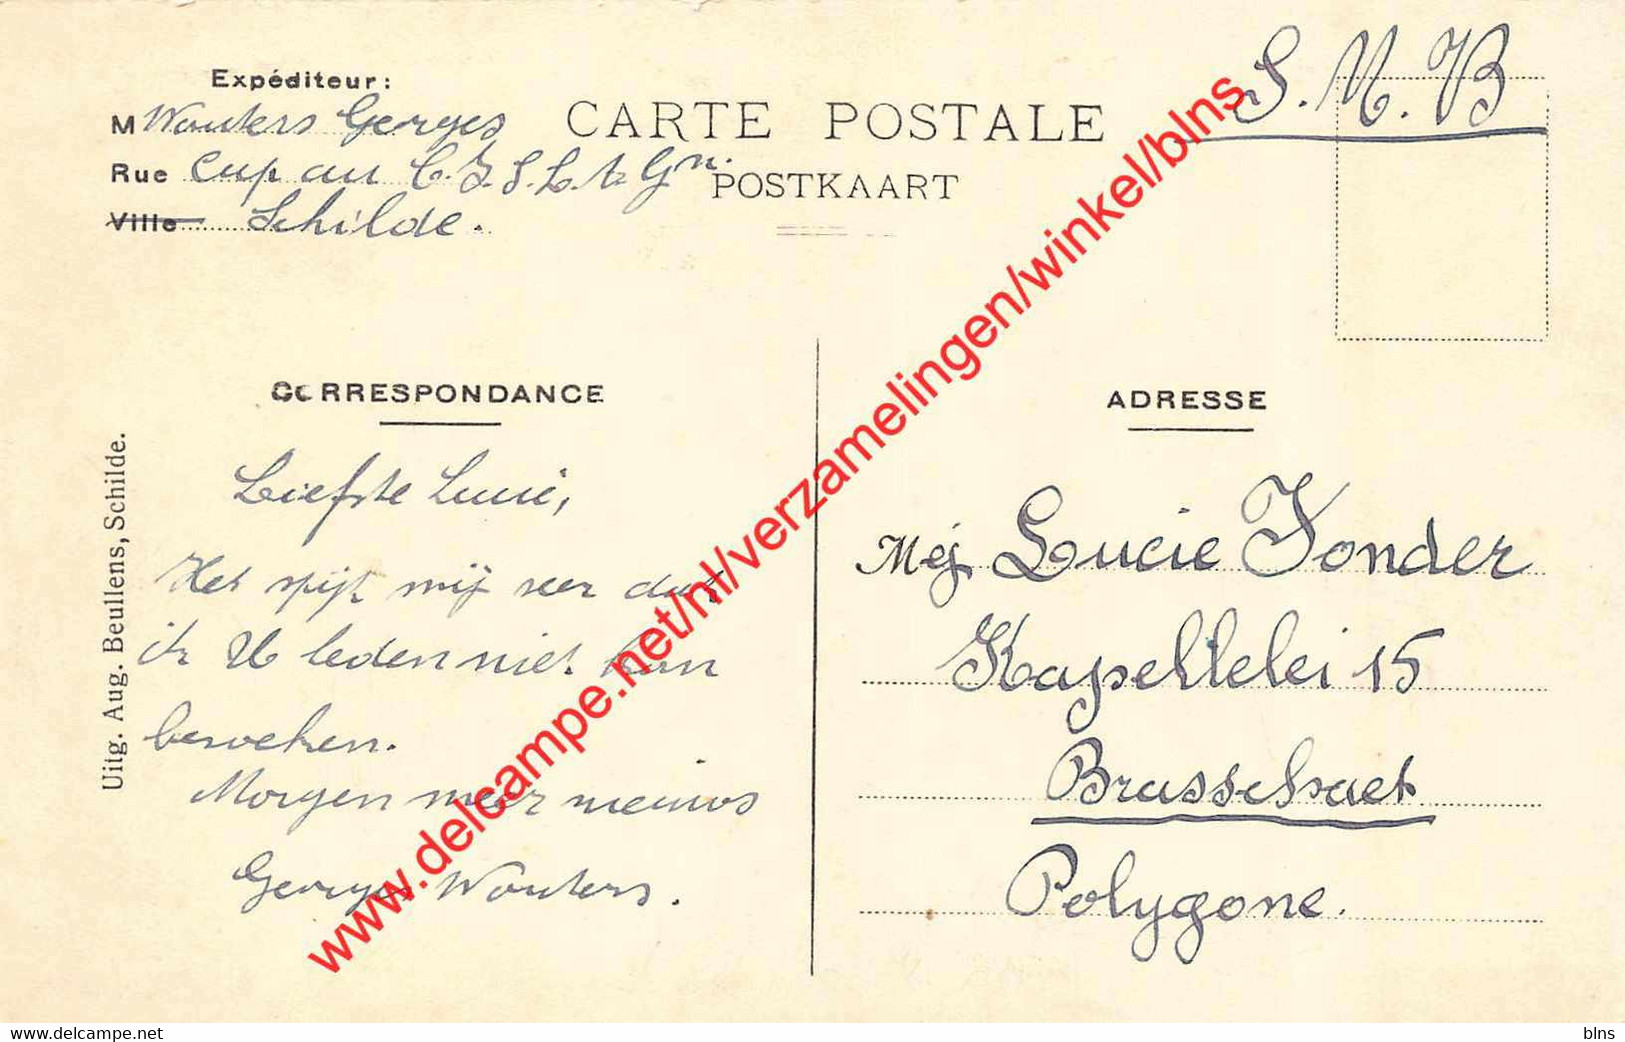 Expéditeur:
M Wouters Georges
Rue Cup au C.I.S.L.A. Gn.
Ville Schilde.
CARTE POSTALE
POSTKAART
S.M.B
CORRESPONDANCE
Liefste Lucie,
Het spijt mij zeer dat
ik U leden niet kan
bezoeken.
Morgen meer nieuws
Georges Wouters.
Uitg. Aug. Beullens, Schilde.
ADRESSE
Mej Lucie Vonder
Kapellelei 15
Brasschaet
Polygone.
www.delcampe.net/nl/verzamelingen/winkel/blns
www.delcampe.net
blns